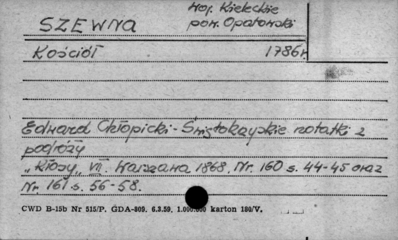 SZEWNA
woj. Kieleckie
pow. Opatowski
Kościół 1786 r.
Edward Chłopicki - Świętokrzyskie notatki z
podróży
„Kłosy„ VII. Warszawa 1868. Nr. 160 s. 44-45 oraz
Nr. 161 s. 56-58.
CWD B-15b Nr 515/P. GDA-809. 6.3.59. 1.000.000 karton 180/V.